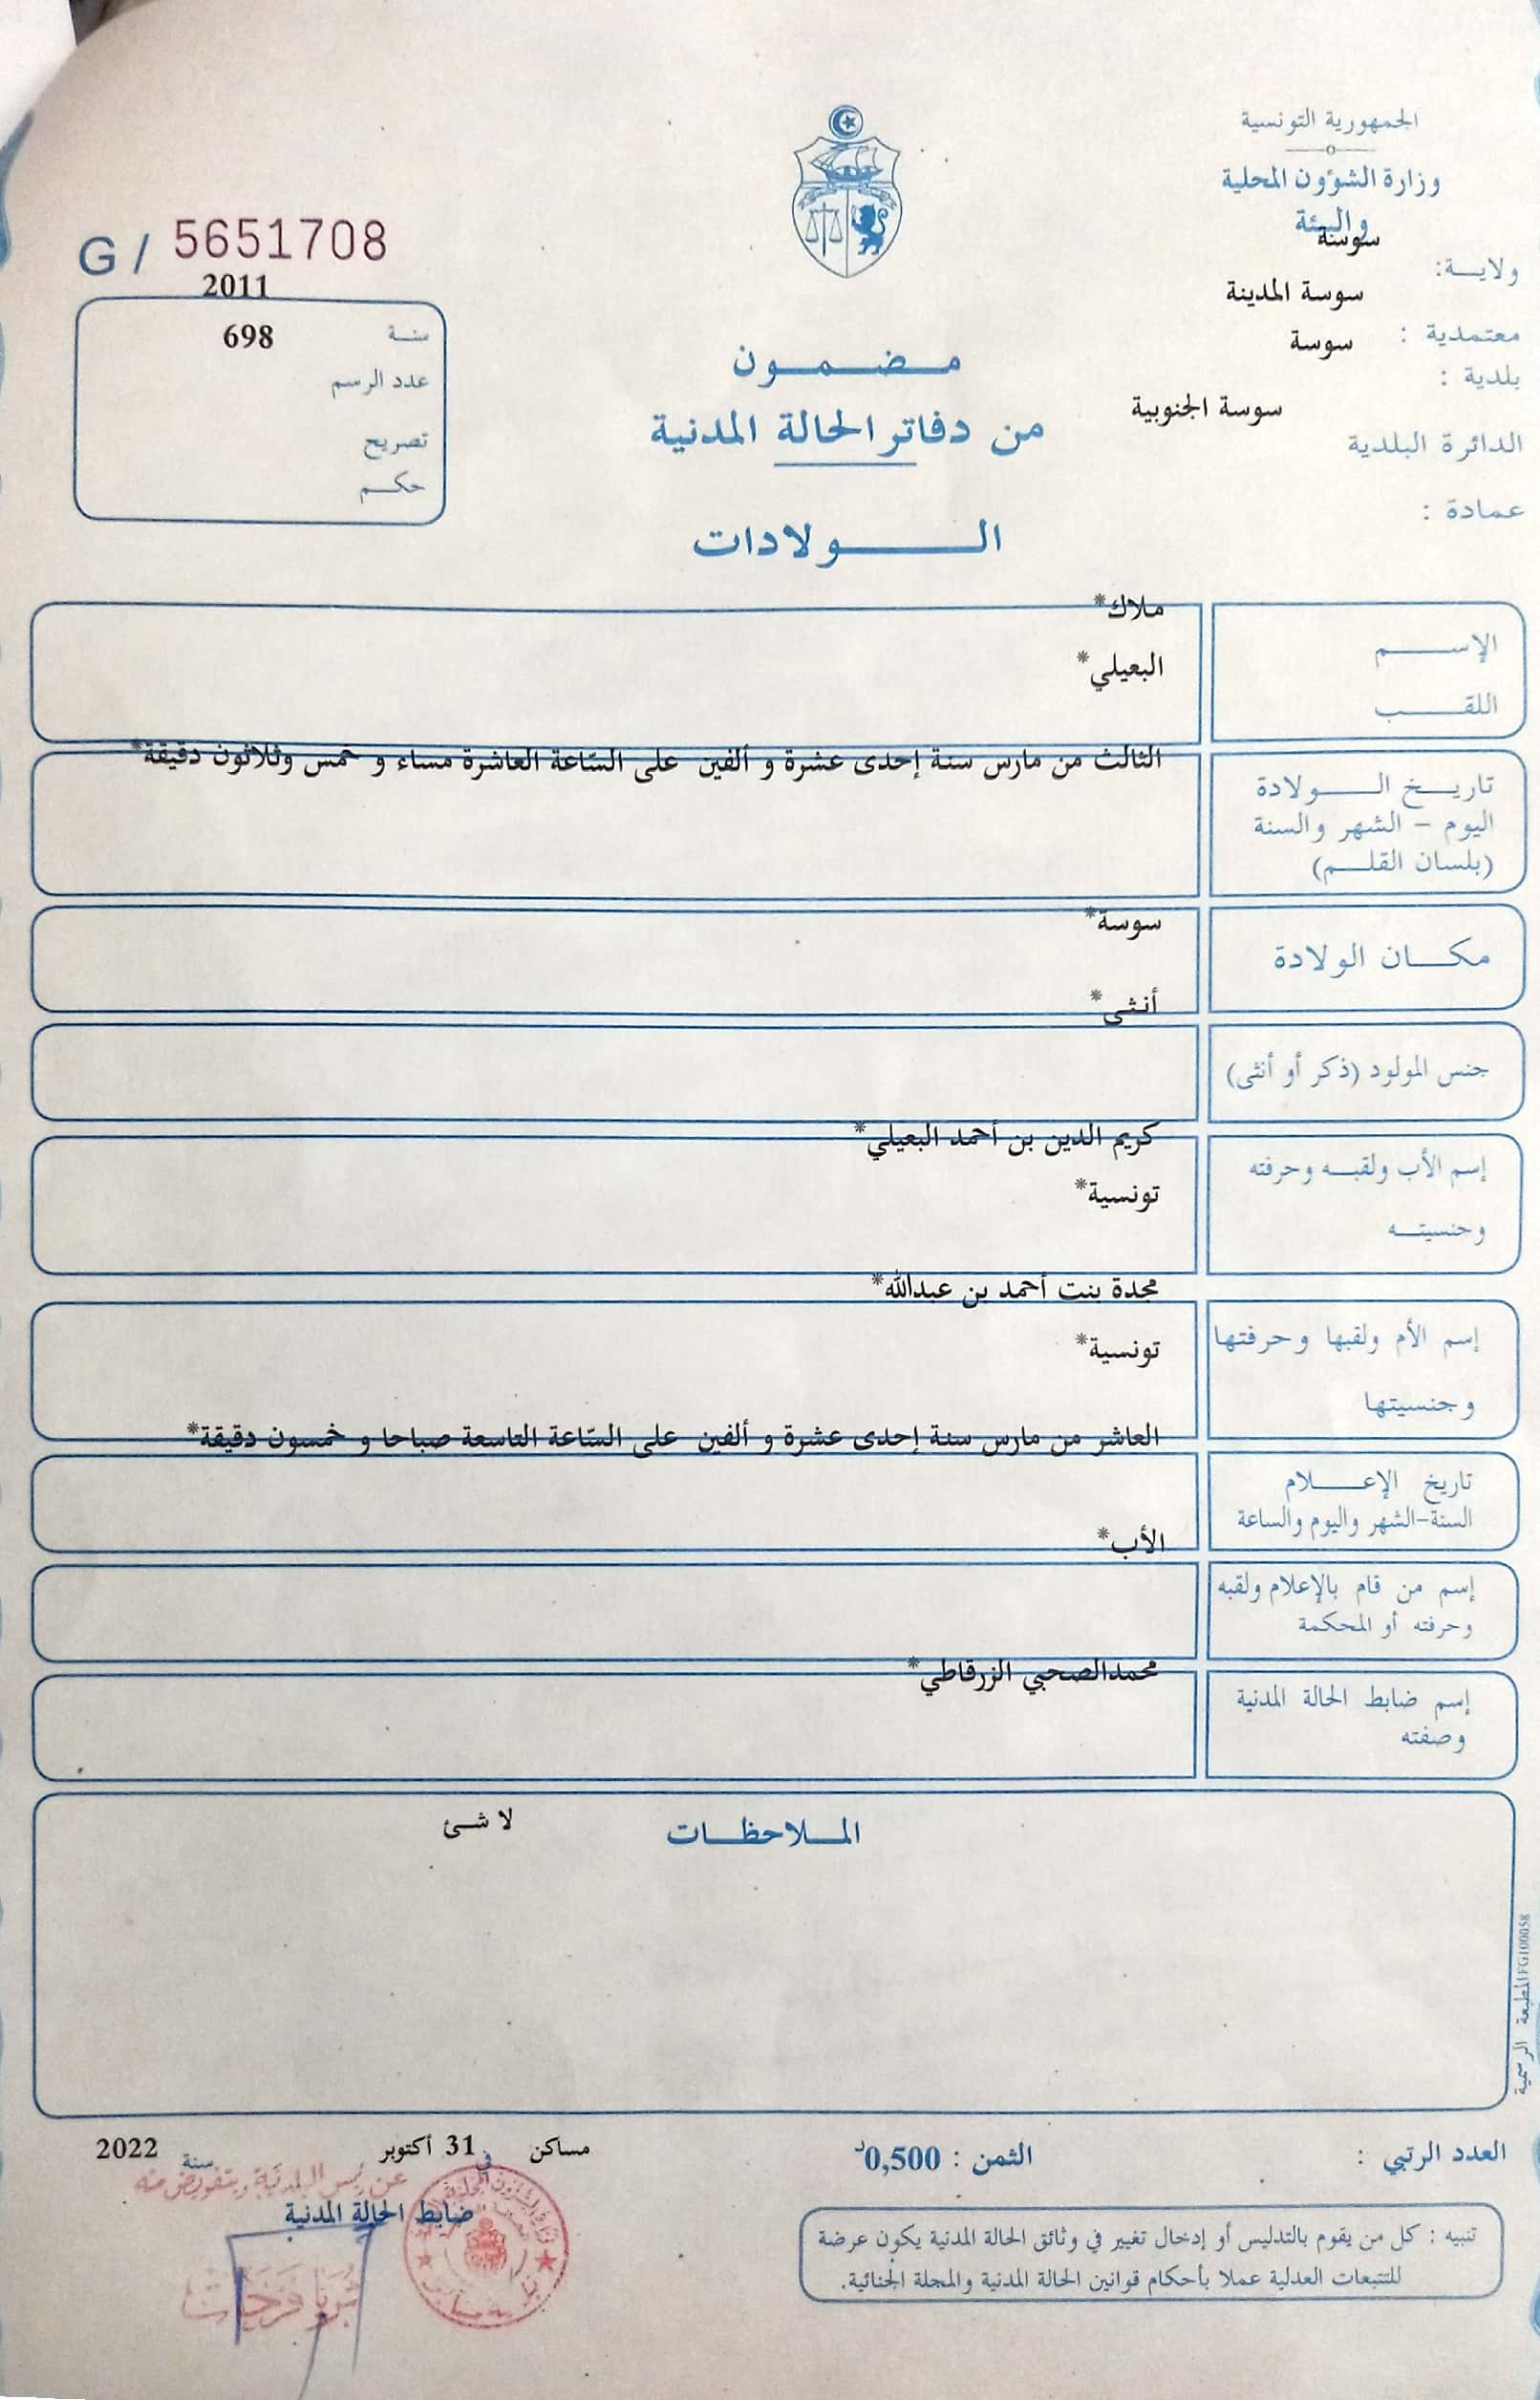 الجمهورية التونسية
وزارة الشؤون المحلية
والبيئة
ولايـــة: سوسة
معتمدية : سوسة المدينة
بلدية : سوسة
الدائرة البلدية سوسة الجنوبية
عمادة :
G / 5651708
سنـة 2011
عدد الرسم 698
تصريح
حكـم
مـضـمـون
من دفاتر الحالة المدنية
الــولادات
الإســـم ملاك*
اللقــب البعيلي*
تاريـخ الــولادة الثالث من مارس سنة إحدى عشرة و ألفين على السّاعة العاشرة مساء و خمس وثلاثون دقيقة*
اليوم – الشهر والسنة
(بلسان القلـم)
مكـان الولادة سوسة*
جنس المولود (ذكر أو أنثى) أنثى*
إسم الأب ولقبـه وحرفته كريم الدين بن أحمد البعيلي*
وحنسيتـه تونسية*
إسم الأم ولقبها وحرفتها مجدة بنت أحمد بن عبدالله*
وجنسيتها تونسية*
تاريخ الإعـــلام العاشر من مارس سنة إحدى عشرة و ألفين على السّاعة التاسعة صباحا و خمسون دقيقة*
السنة-الشهر واليوم والساعة
إسم من قام بالإعلام ولقبه الأب*
وحرفته أو المحكمة
إسم ضابط الحالة المدنية محمدالصحبي الزرقاطي*
وصفته
المـلاحظـات لا شئ
المطبعة الرسمية FG100058
العدد الرتبي :
الثمن : 0,500د
مساكن في 31 أكتوبر سنة 2022
عن رئيس البلدية وبتفويض منه
ضابط الحالة المدنية
تنبيه : كل من يقوم بالتدليس أو إدخال تغيير في وثائق الحالة المدنية يكون عرضة
للتتبعات العدلية عملا بأحكام قوانين الحالة المدنية والمجلة الجنائية.